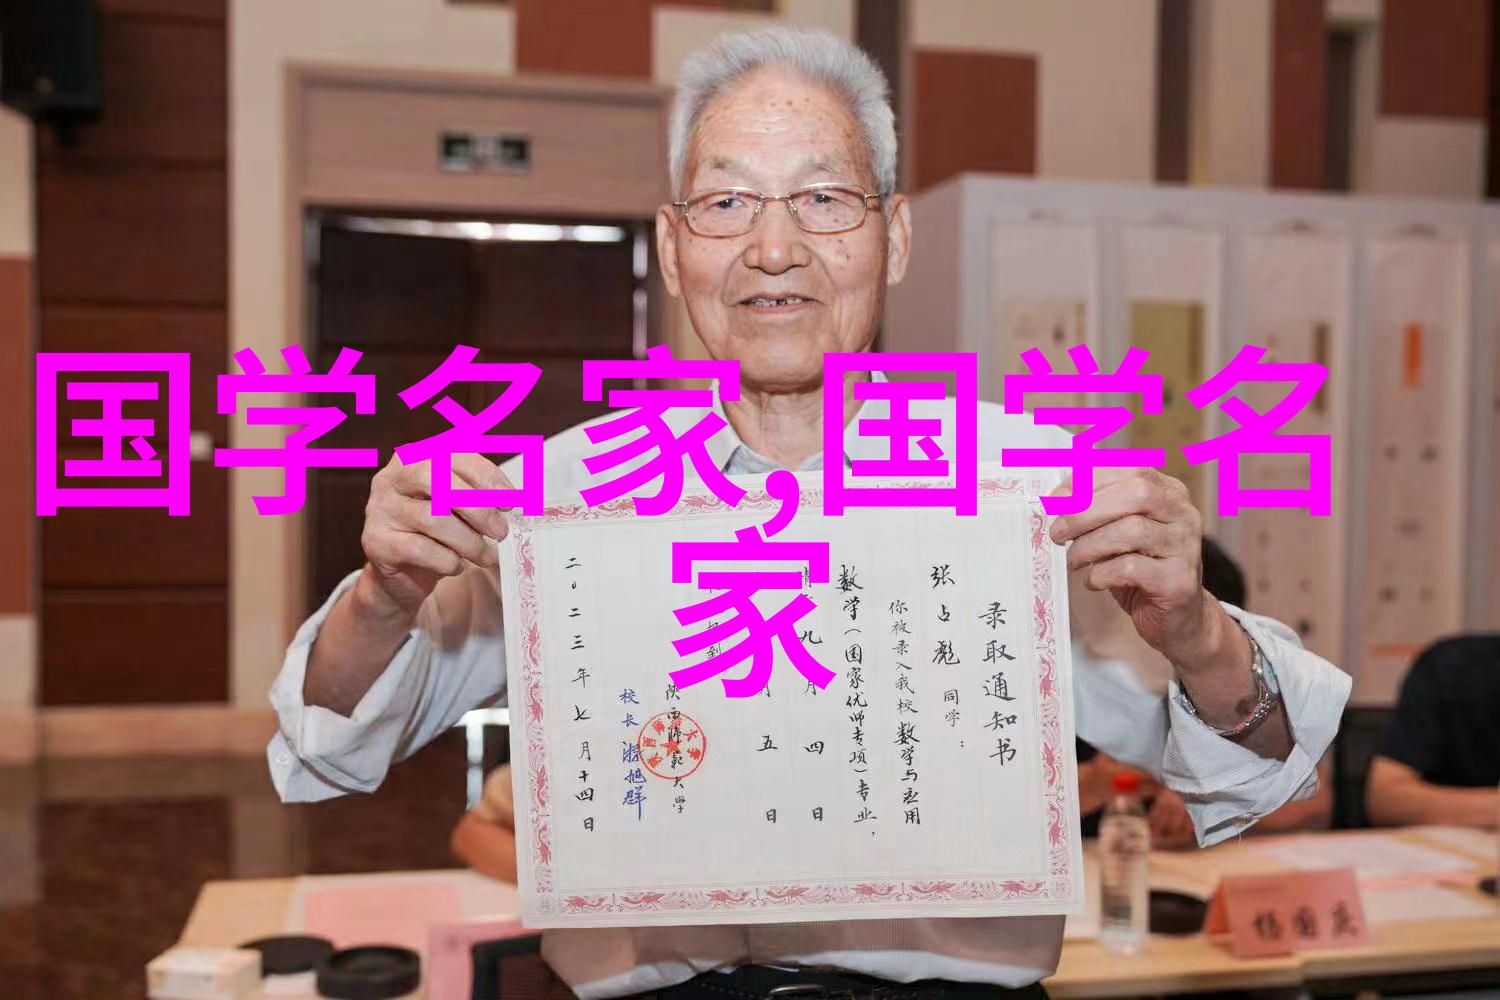 国学名家,国学名
家
录取通知书
张占彪 同学：
你被录入我校数学与应用
数学（国家优师专项）专业，
九月四日
月五日
到
陕西师范大学
校长 游旭群
二〇二三年七月十四日
杨国庆